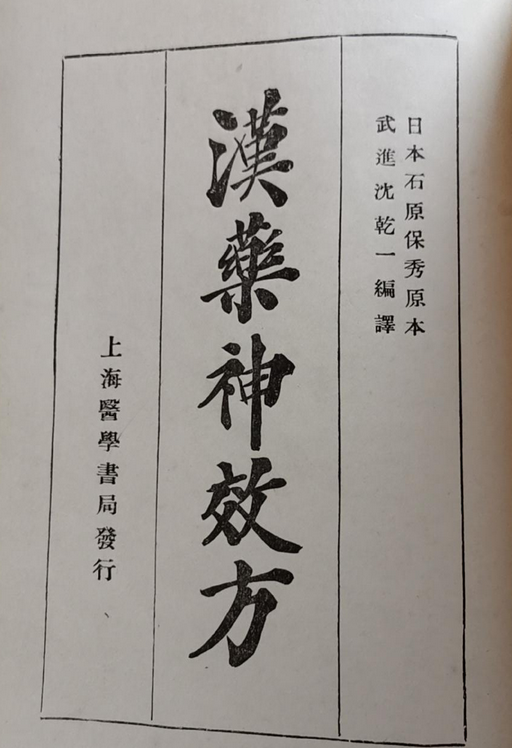 日本石原保秀原本
武進沈乾一編譯
漢藥神效方
上海醫學書局發行